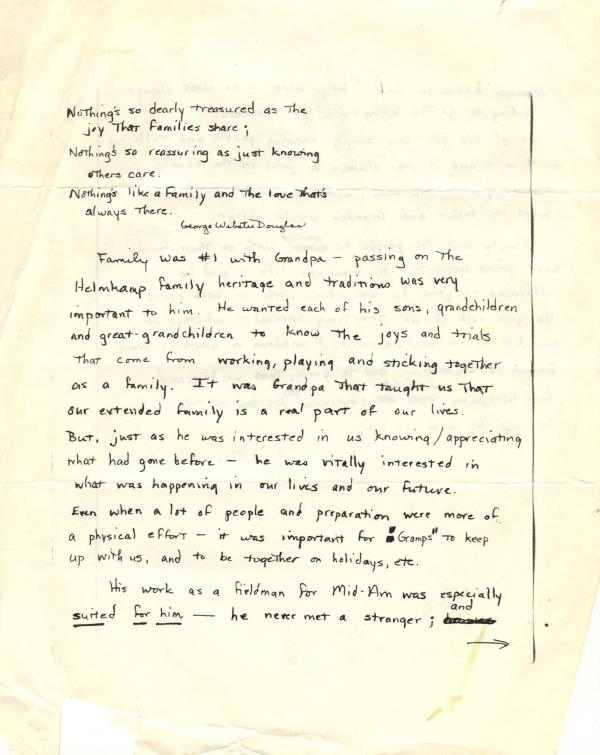 Nothing's so dearly treasured as the
joy that families share;
Nothing's so reassuring as just knowing
others care.
Nothing's like a family and the love that's
always there.
George Webster Douglas
Family was #1 with Grandpa — passing on the
Helmkamp family heritage and traditions was very
important to him. He wanted each of his sons, grandchildren
and great-grandchildren to know the joys and trials
that come from working, playing and sticking together
as a family. It was Grandpa that taught us that
our extended family is a real part of our lives.
But, just as he was interested in us knowing/appreciating
what had gone before — he was vitally interested in
what was happening in our lives and our future.
Even when a lot of people and preparation were more of
a physical effort — it was important for "Gramps" to keep
up with us, and to be together on holidays, etc.
His work as a fieldman for Mid-Am was especially
suited for him — he never met a stranger; and